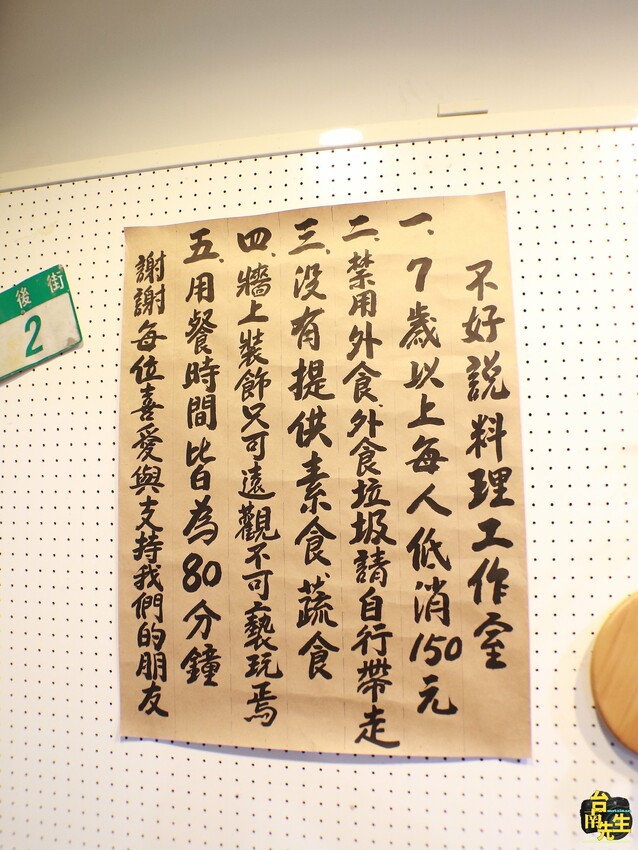 不好説料理工作室
一、7歲以上每人低消150元
二、禁用外食、外食垃圾請自行帶走
三、没有提供素食、蔬食
四、牆上裝飾只可遠觀不可褻玩焉
五、用餐時間皆為80分鐘
謝謝每位喜愛與支持我們的朋友
後街
2
台南先生